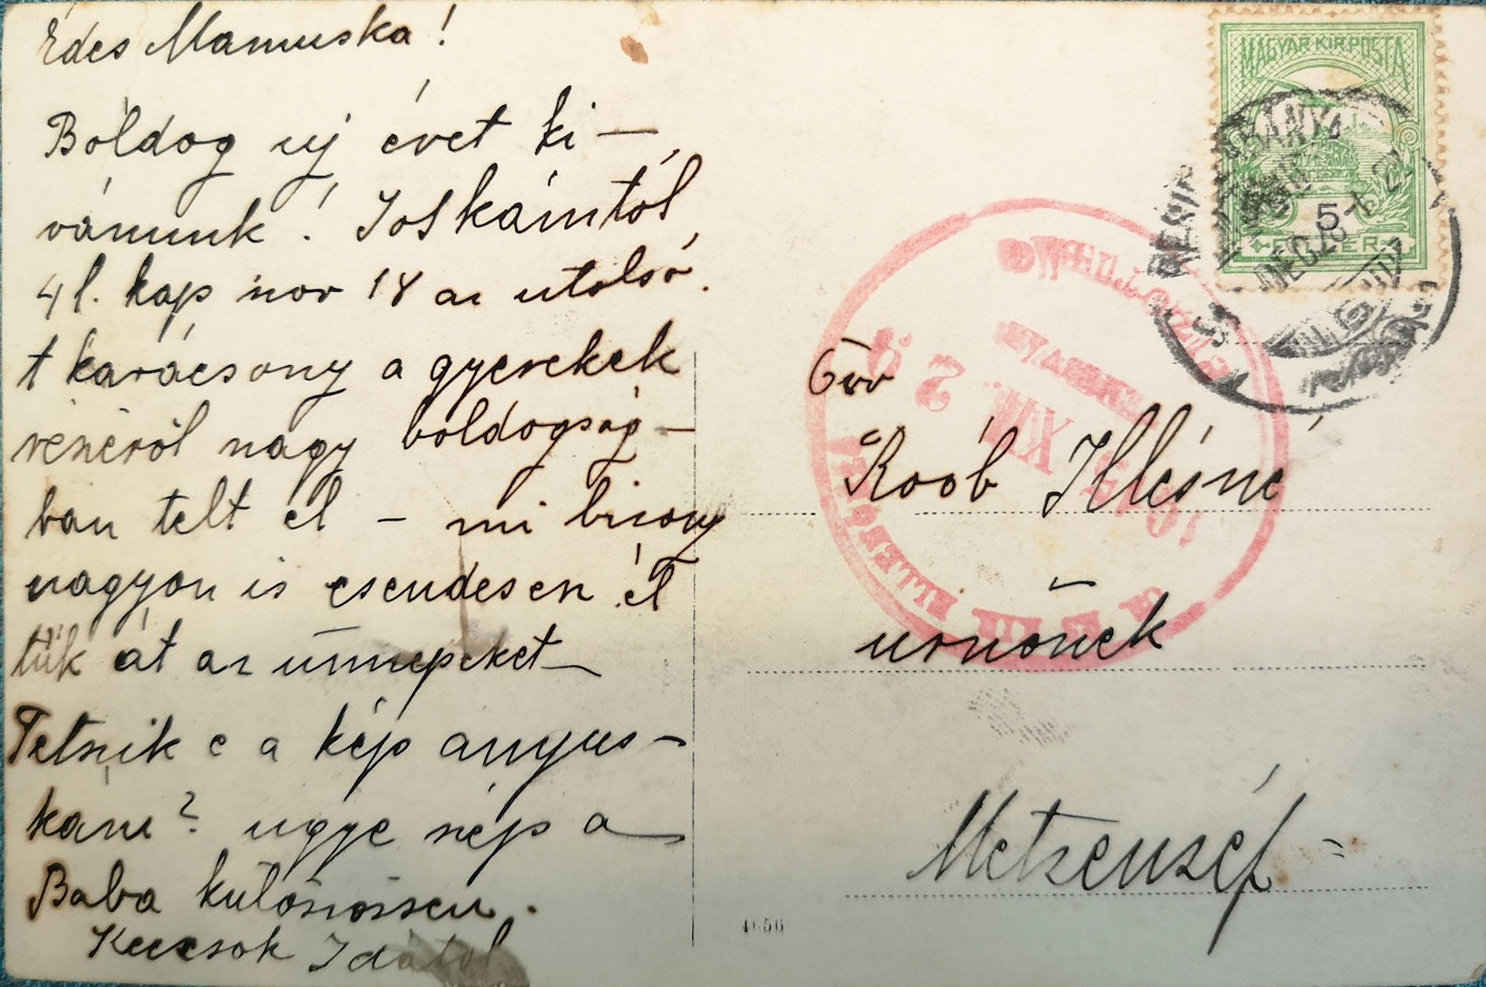 Édes Mamuska!
Bóldog uj évet ki-
vánunk! Joskámtól
4 l. kap nov 18 az utolsó.
t karácsony a gyerekek
részéröl nagy boldogság-
ban telt el - mi bizony
nagyon is csendesen él
tük át az ünnepeket
Tetszik e a kép anyus-
kám? ugye szép a
Baba külónóssen.
Kucsok Idától
MAGYAR KIR. POSTA
5
FILLÉR
Özv
Roób Illésné
urnönek
Metzenzéf